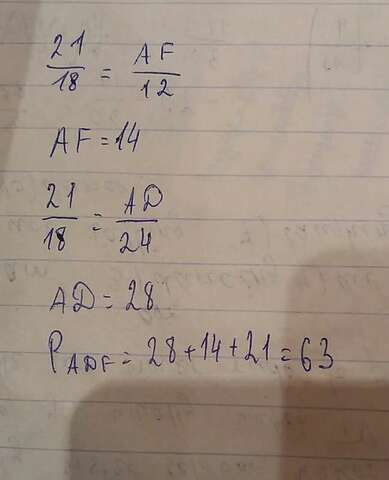 21/18 = AF/12
AF = 14
21/18 = AD/24
AD = 28
P_ADF = 28 + 14 + 21 = 63